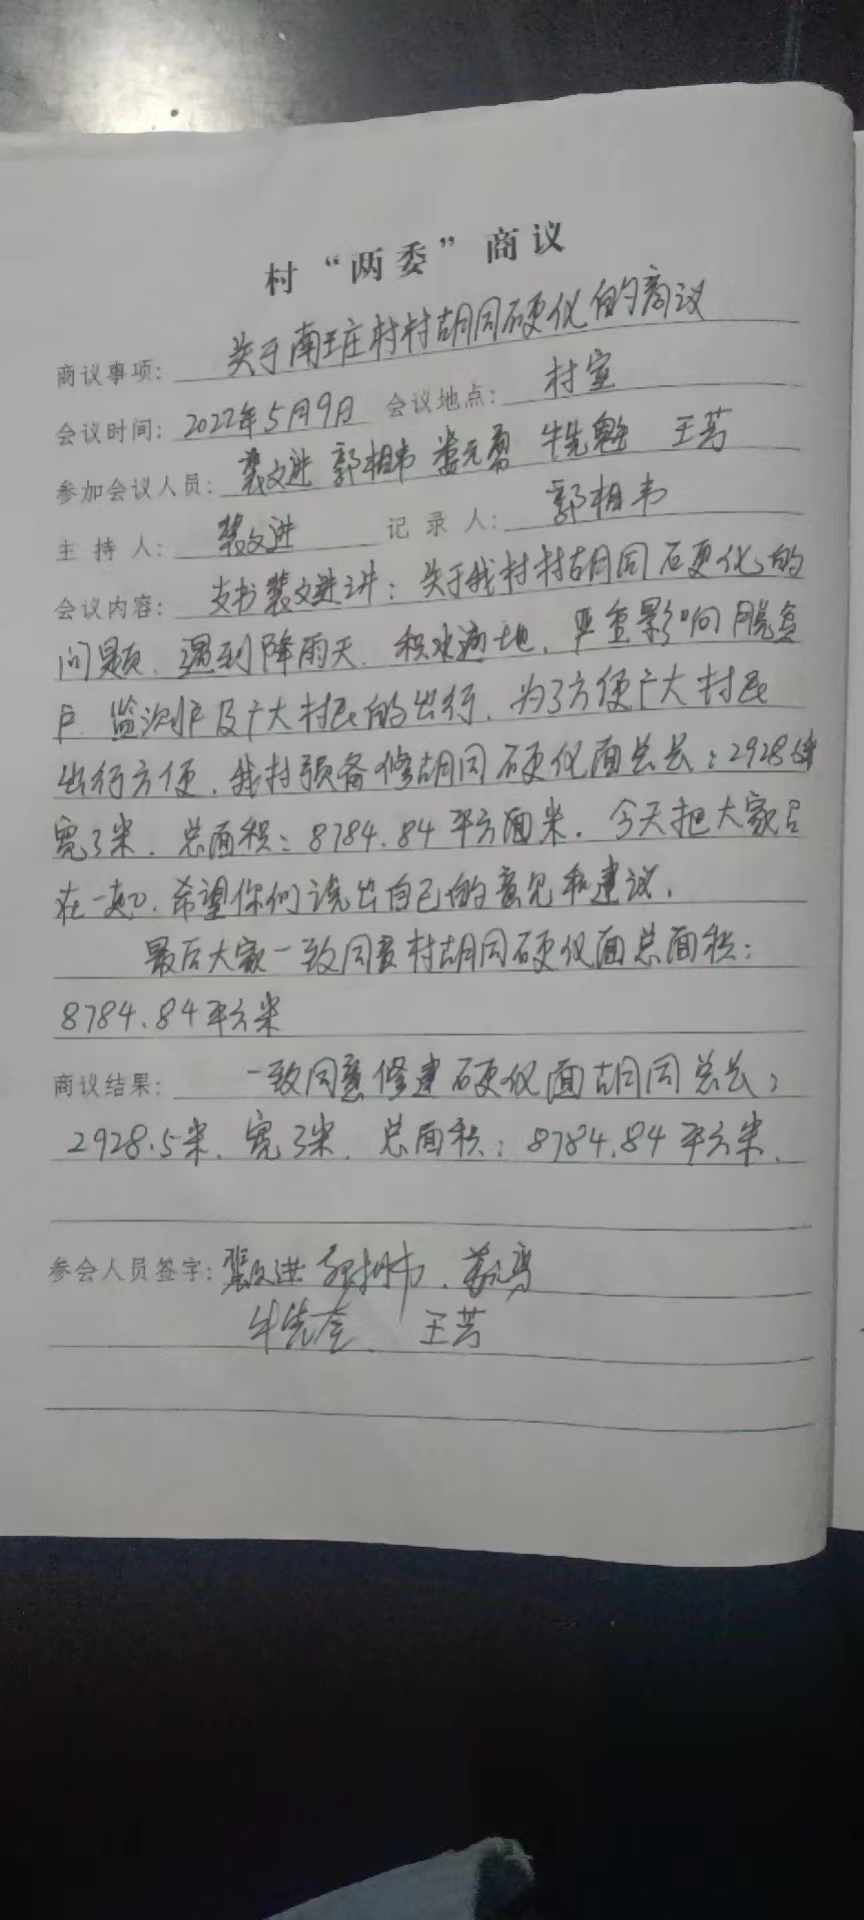 村“两委”商议
商议事项: 关于南王庄村村胡同硬化的商议
会议时间: 2022年5月9日 会议地点: 村室
参加会议人员: 裴文进 郭相韦 娄元勇 牛先魁 王芳
主持人: 裴文进 记录人: 郭相韦
会议内容: 支书裴文进讲: 关于我村村胡同硬化的
问题. 遇到降雨天. 积水遍地, 严重影响脱贫
户. 监测户及广大村民的出行, 为了方便广大村民
出行方便. 我村预备修胡同硬化面总长: 2928.5米
宽3米. 总面积: 8784.84平方面米. 今天把大家召
在一起. 希望你们说出自己的意见和建议.
最后大家一致同意村胡同硬化面总面积:
8784.84平方米
商议结果: 一致同意修建硬化面胡同总长:
2928.5米. 宽3米. 总面积: 8784.84平方米.
参会人员签字: 裴文进 郭相韦. 娄元勇
牛先奎 王芳